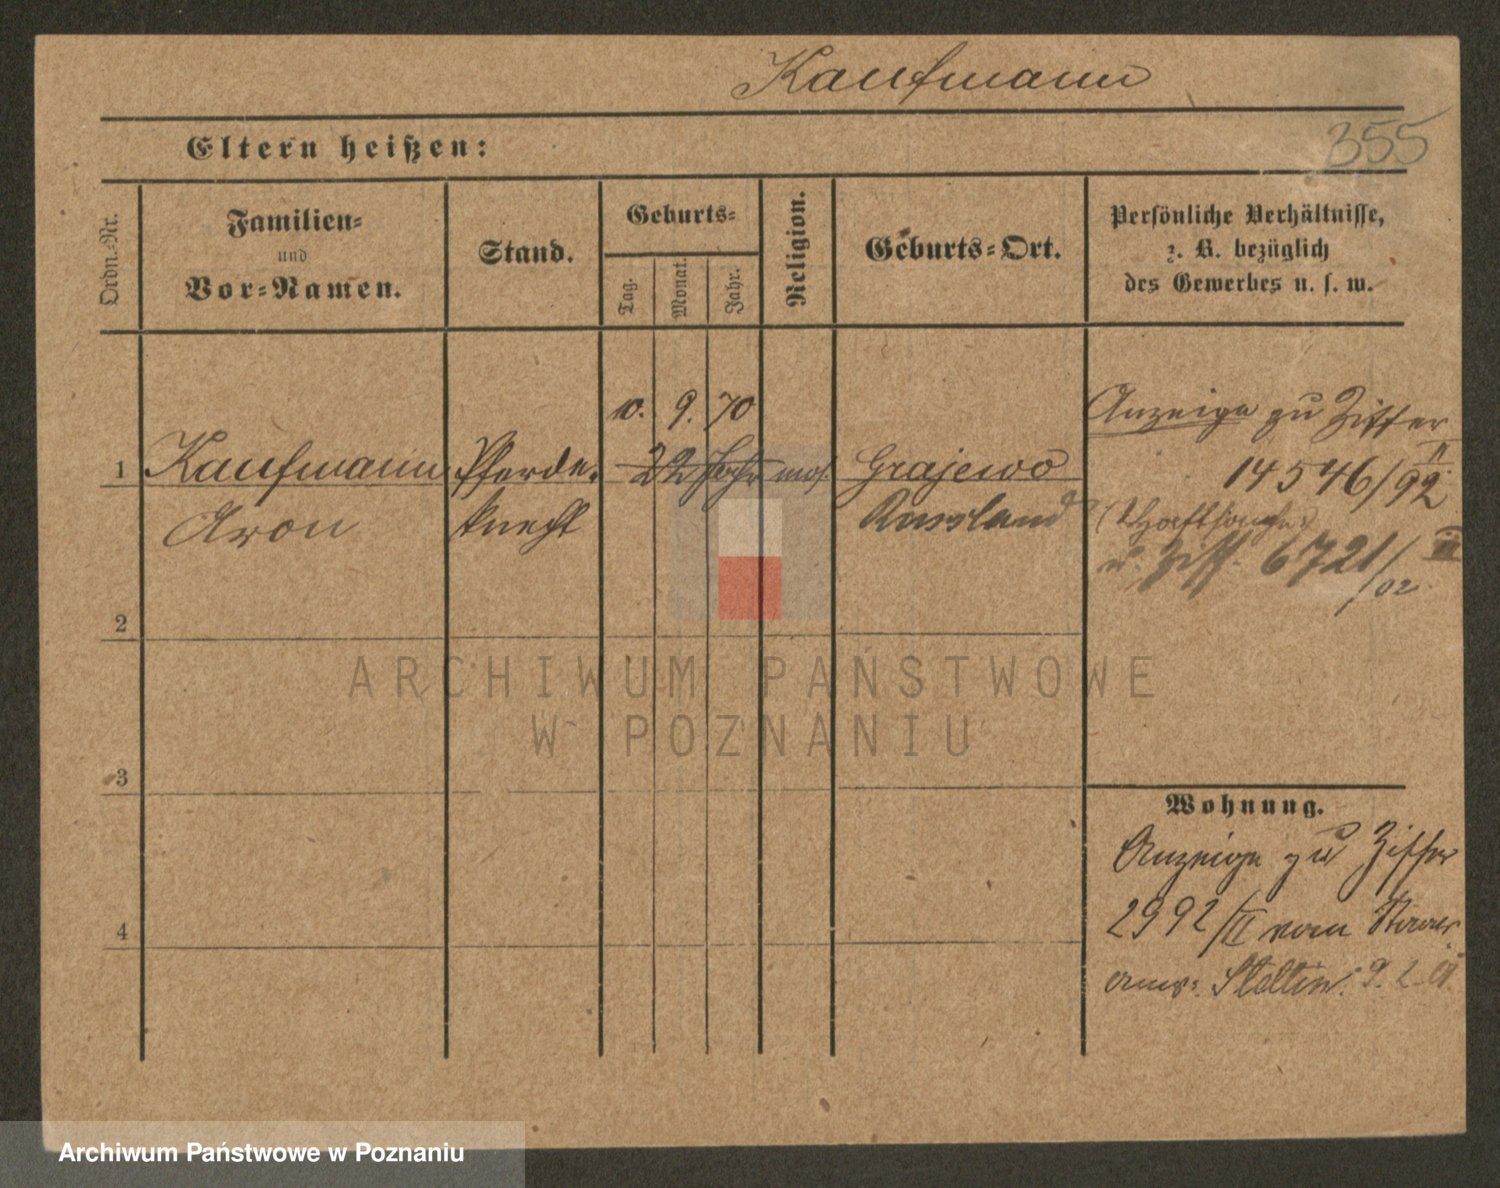 Kaufmann
355
Eltern heißen:
Ordn.-Nr.
Familien-
und
Vor-Namen.
Stand.
Geburts-
Tag.
Monat.
Jahr.
Religion.
Geburts-Ort.
Persönliche Verhältnisse,
z. B. bezüglich
des Gewerbes u. s. w.
10. 9. 70
1 Kaufmann Pferde- 22 Jahr mos. Grajewo
Aron knecht Russland
Anzeige zu Ziffer
14546/92 II
u. Ziff. 6721/02 III
2
3
4
Wohnung.
Anzeige zu Ziffer
2992/II vom
Stettin. 9. 2.
ARCHIWUM PAŃSTWOWE
W POZNANIU
Archiwum Państwowe w Poznaniu